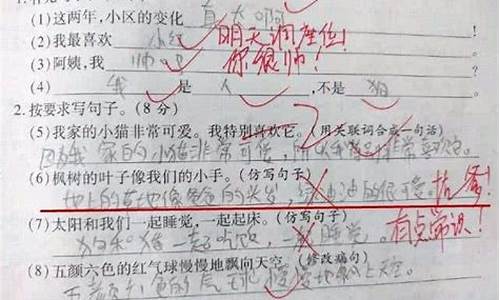 (1)这两年,小区的变化 真大啊
(2)我最喜欢 小红 明天调座位!
(3)阿姨,我 帅吧 你很帅!
(4) 我 是 人 ,不是 狗
2.按要求写句子。(8分)
(5)我家的小猫非常可爱。我特别喜欢它。(用关联词合成一句话)
因为我家的小猫非常可爱,所以我 非常喜欢它。
(6)枫树的叶子像我们的小手。(仿写句子)
地上的草地像爸爸的头发,绿油油的很可爱。 找爹!
(7)太阳和我们一起睡觉,一起起床。(仿写句子)
狗和猪一起吃饭,一 睡觉。 有点常识!
(8)五颜六色的红气球慢慢地飘向天空。(修改病句)
五颜六色的气球慢慢地飘上天空。